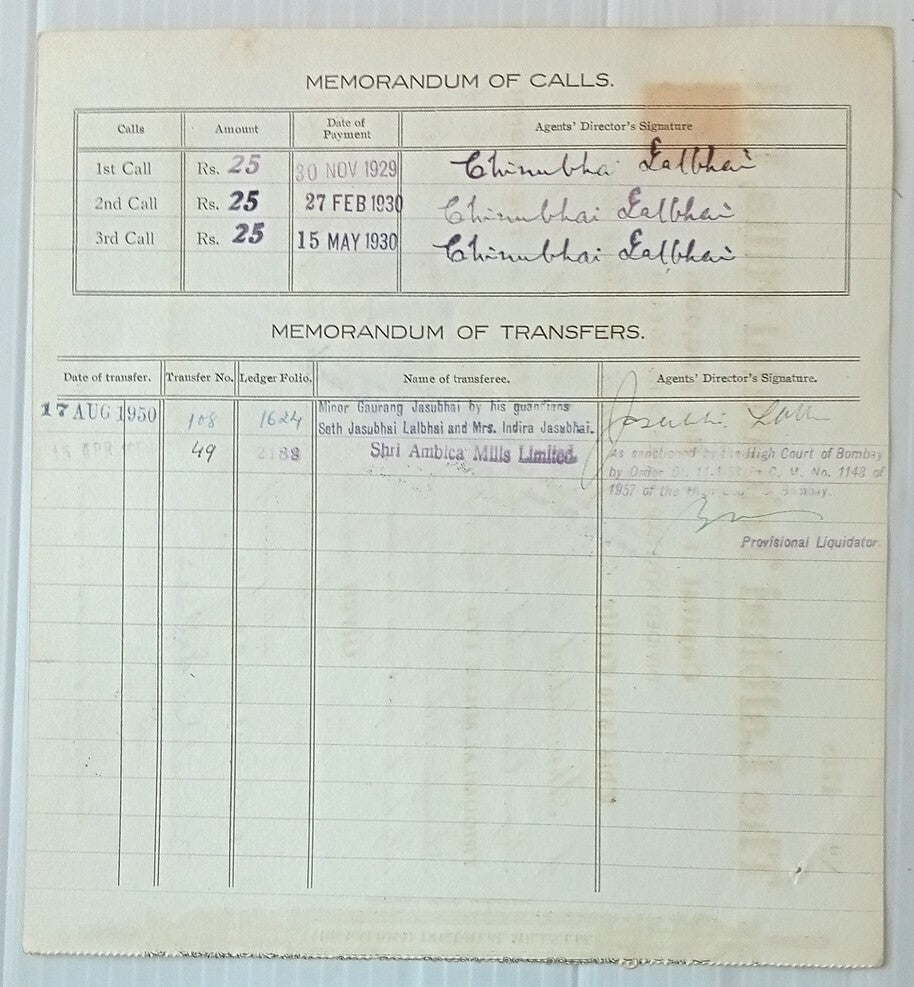 MEMORANDUM OF CALLS.
Calls Amount Date of Payment Agents' Director's Signature
1st Call Rs. 25 30 NOV 1929 Chinubhai Lalbhai
2nd Call Rs. 25 27 FEB 1930 Chinubhai Lalbhai
3rd Call Rs. 25 15 MAY 1930 Chinubhai Lalbhai
MEMORANDUM OF TRANSFERS.
Date of transfer. Transfer No. Ledger Folio. Name of transferee. Agents' Director's Signature.
17 AUG 1950 108 1624 Minor Gaurang Jasubhai by his guardians
Seth Jasubhai Lalbhai and Mrs. Indira Jasubhai. Jasubhai Lalbhai
APR 49 2188 Shri Ambica Mills Limited. As sanctioned by the High Court of Bombay
by Order C. No. 1148 of
1957 of the High Court of Bombay.
Provisional Liquidator